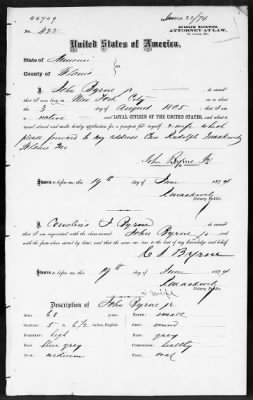 40709
June 22/74
No. 422
ATTORNEY AT LAW,
United States of America.
State of Missouri
County of St Louis
I, John Byrne Jr
do swear
that I was born in New York City
on the 3 day of August 1805
native and LOYAL CITIZEN OF THE UNITED STATES, and about to
travel abroad and hereby apply for a passport for myself & wife which
please forward to my address Care Rudolph
St Louis Mo
John Byrne Jr
Sworn to before me, this 19th day of June 1874
Notary Public.
I, Cornelius J Byrne do swear
that I am acquainted with the above-named John Byrne Jr and
with the facts above stated by him; and that the same are true to the best of my knowledge and belief.
C J Byrne
Sworn to before me, this 19th day of June 1874
Notary Public.
& wife
Description of John Byrne jr
Age: 68 years.
Stature: 5 ft 6 1/2 inches, English.
Forehead: high
Eyes: blue gray
Nose: medium
Mouth: small
Chin: round
Hair: gray
Complexion: healthy
Face: oval